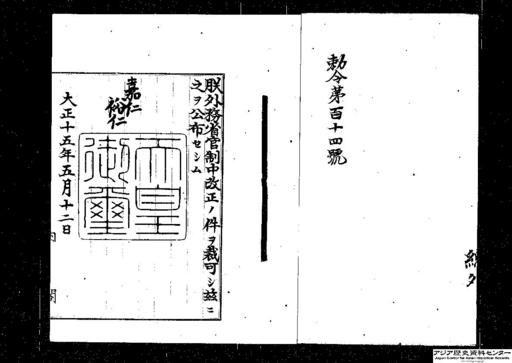 勅令第百十四號
朕外務省官制中改正ノ件ヲ裁可シ玆ニ
之ヲ公布セシム
嘉仁
裕仁
天皇
御璽
大正十五年五月十二日
内
閣
アジア歴史資料センター
Japan Center for Asian Historical Records